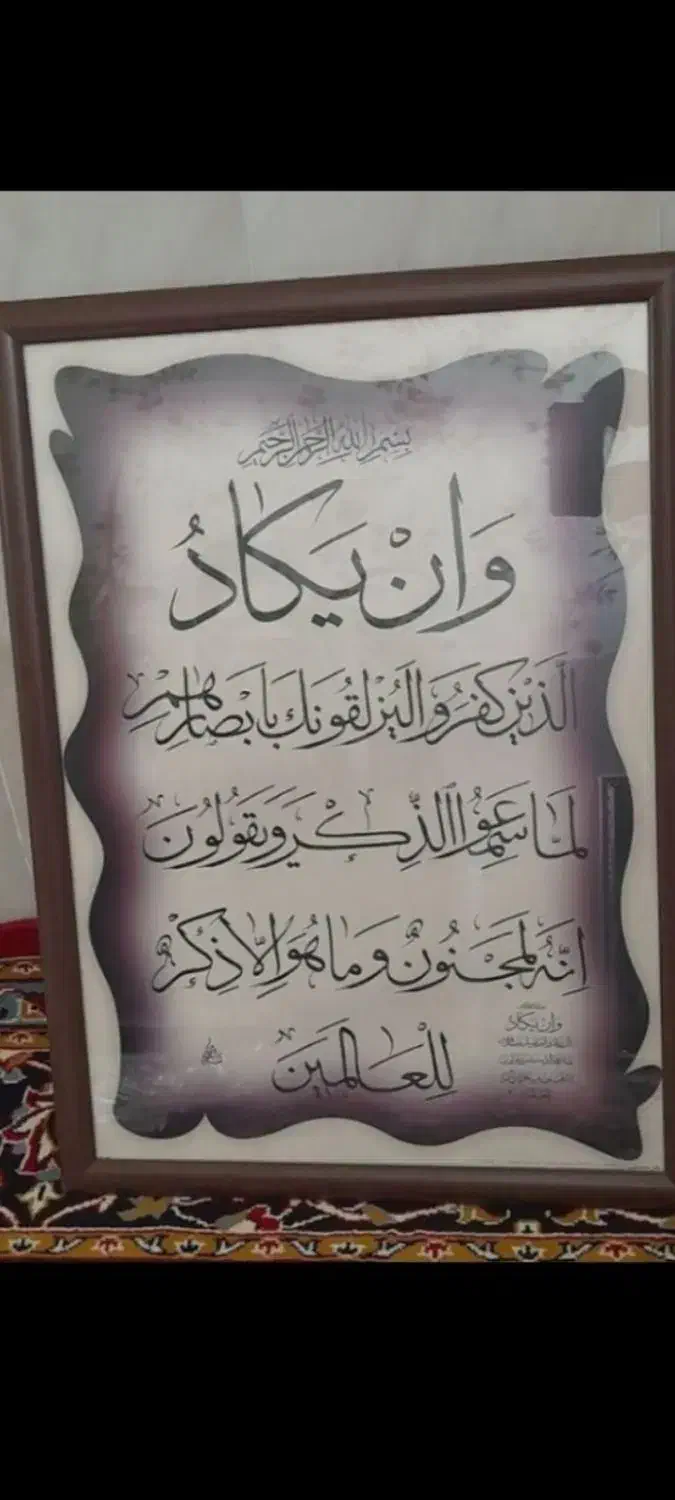 بِسْمِ اللهِ الرَّحْمنِ الرَّحيمِ
وَاِنْ يَكادُ
الَّذينَ كَفَرُوا لَيُزْلِقُونَكَ بِاَبْصارِهِمْ
لَمّا سَمِعُوا الذِّكْرَ وَيَقُولُونَ
اِنَّهُ لَمَجْنُونٌ وَما هُوَ اِلّا ذِكْرٌ
لِلْعالَمينَ
وان یکاد